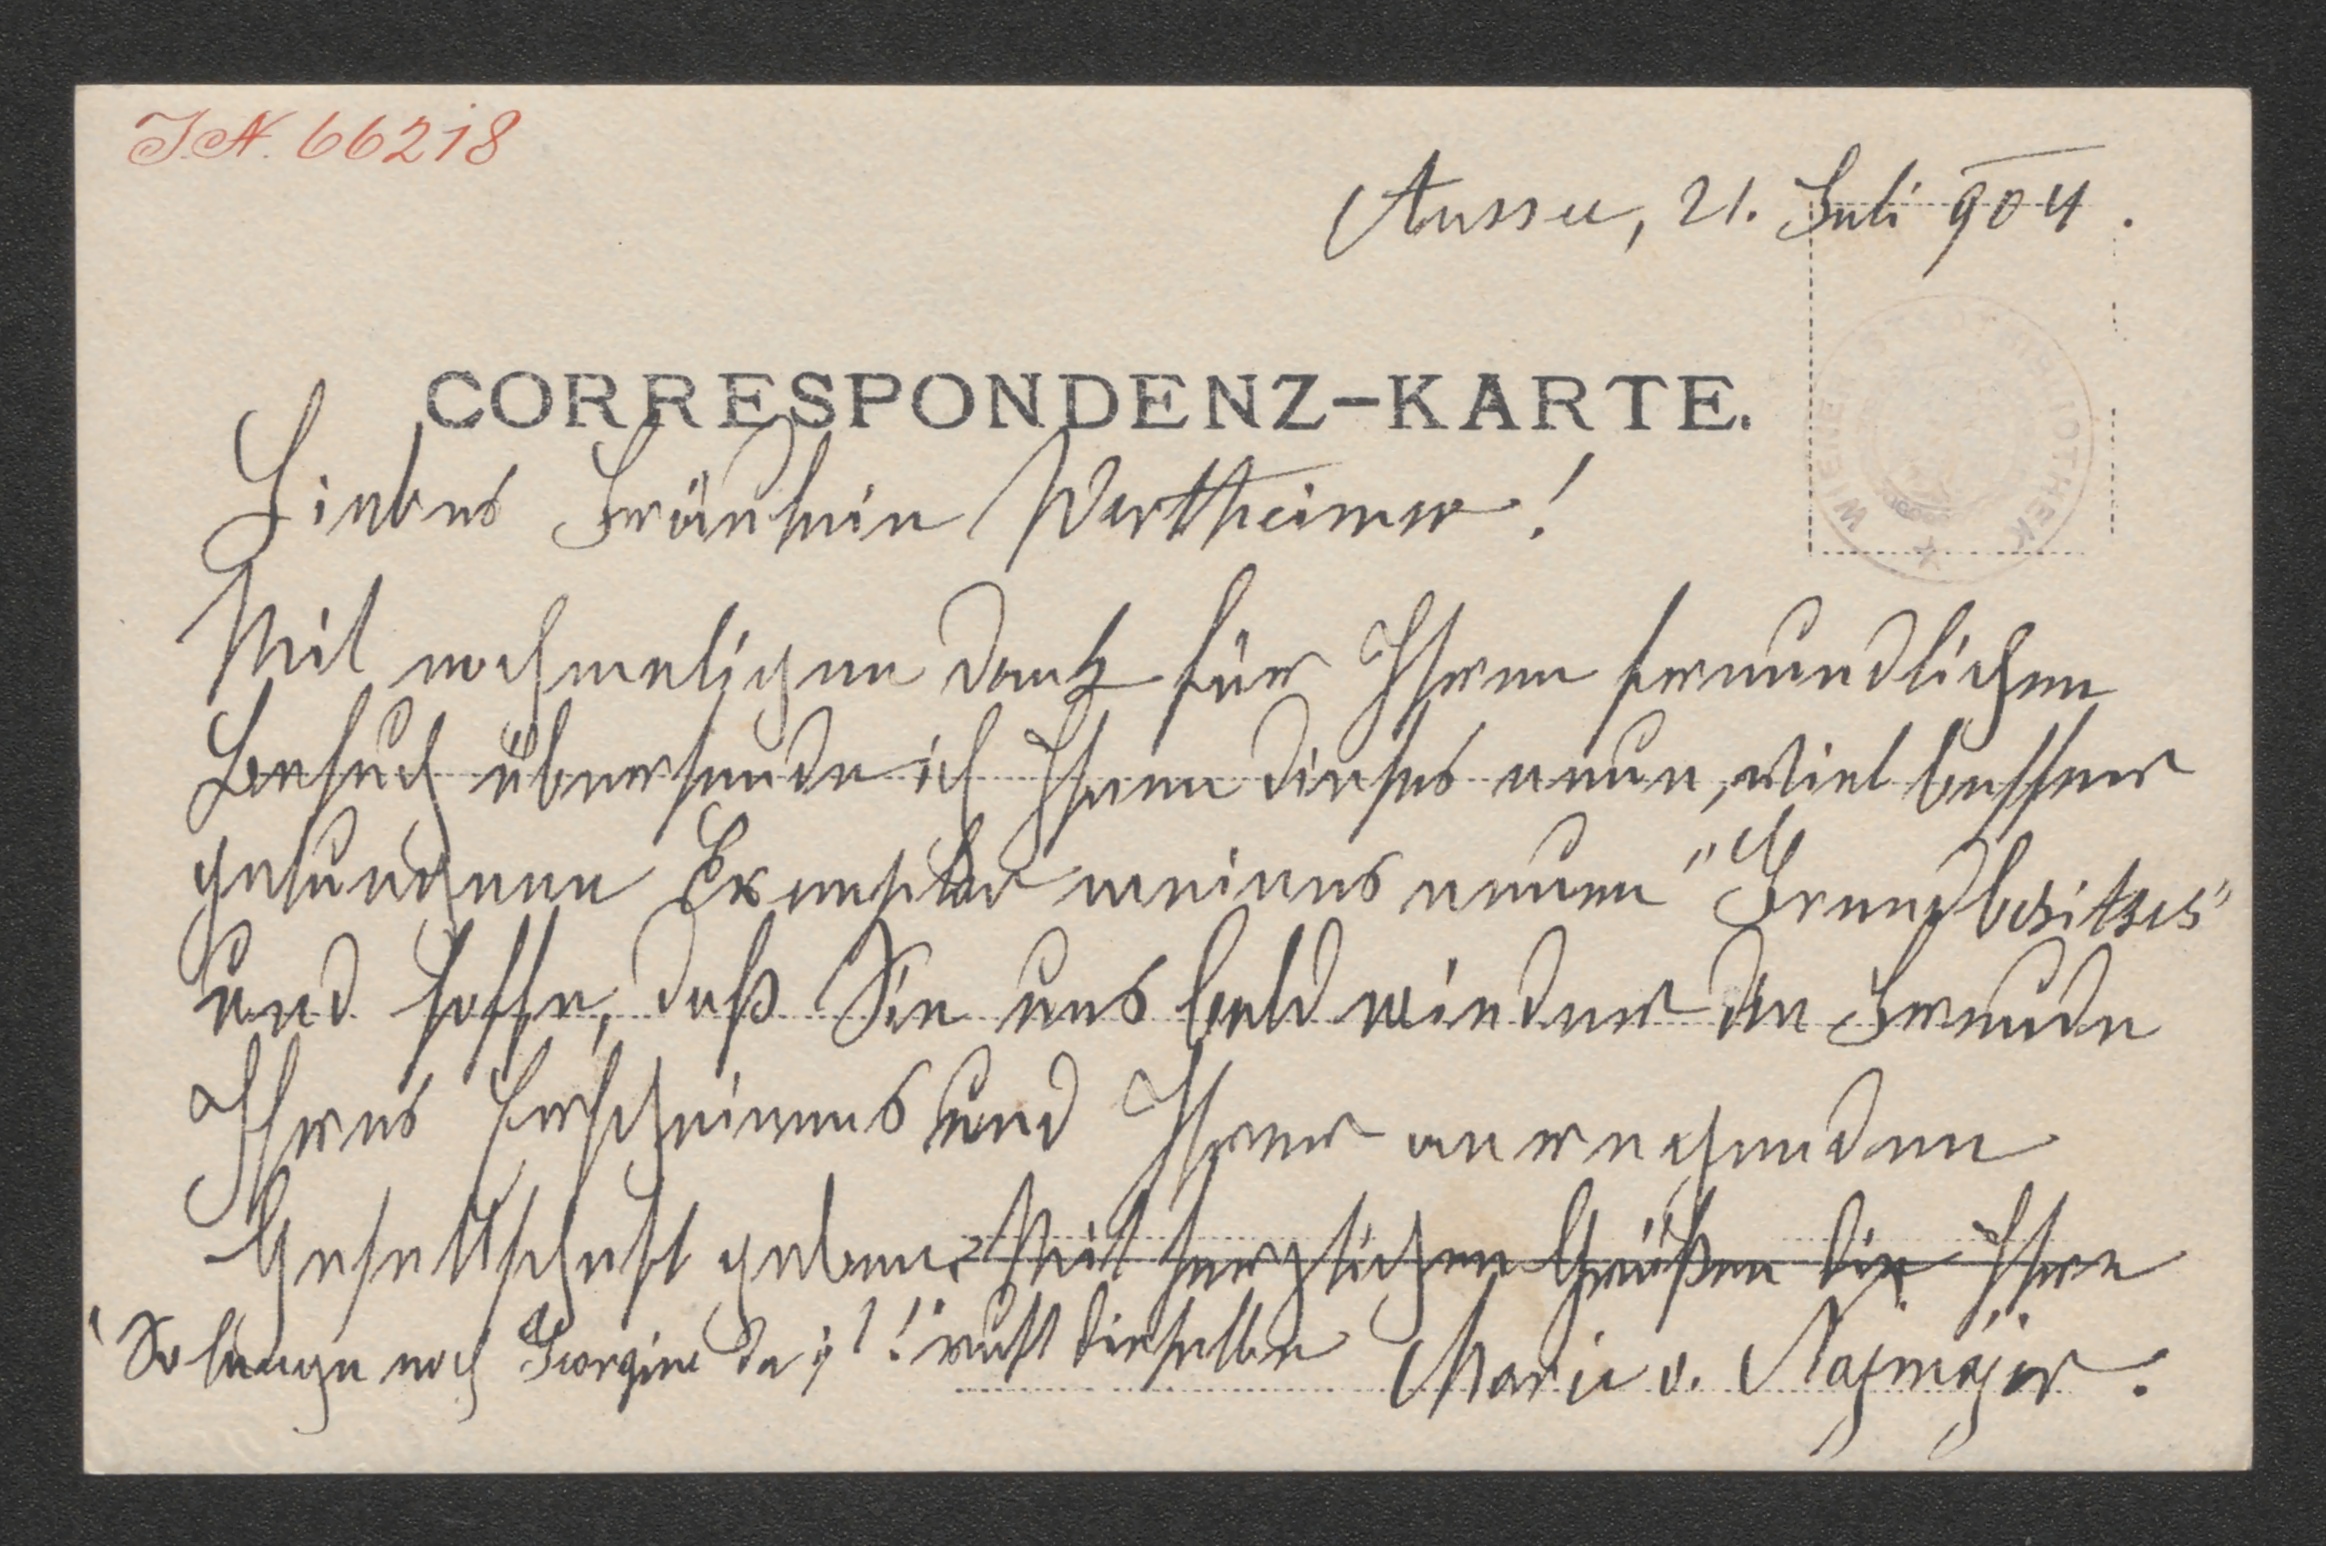 I.N. 66218
Aussee, 21. Juli 904.
CORRESPONDENZ-KARTE.
Liebes Fräulein Wertheimer!
Mit nochmaligem Dank für Ihren freundlichen
Besuch übersende ich Ihnen dieses neue, viel besser
gelungene Exemplar meines neuen "Grundbesitzes"
und hoffe, daß Sie uns bald wieder die Freude
Ihres Erscheinens und Ihrer anregenden
Gesellschaft geben. Mit herzlichen Grüßen die Ihre
"So lange noch Georgine da ist!" ruft dieselbe Marie v. Najmájer.
WIENER STADTBIBLIOTHEK